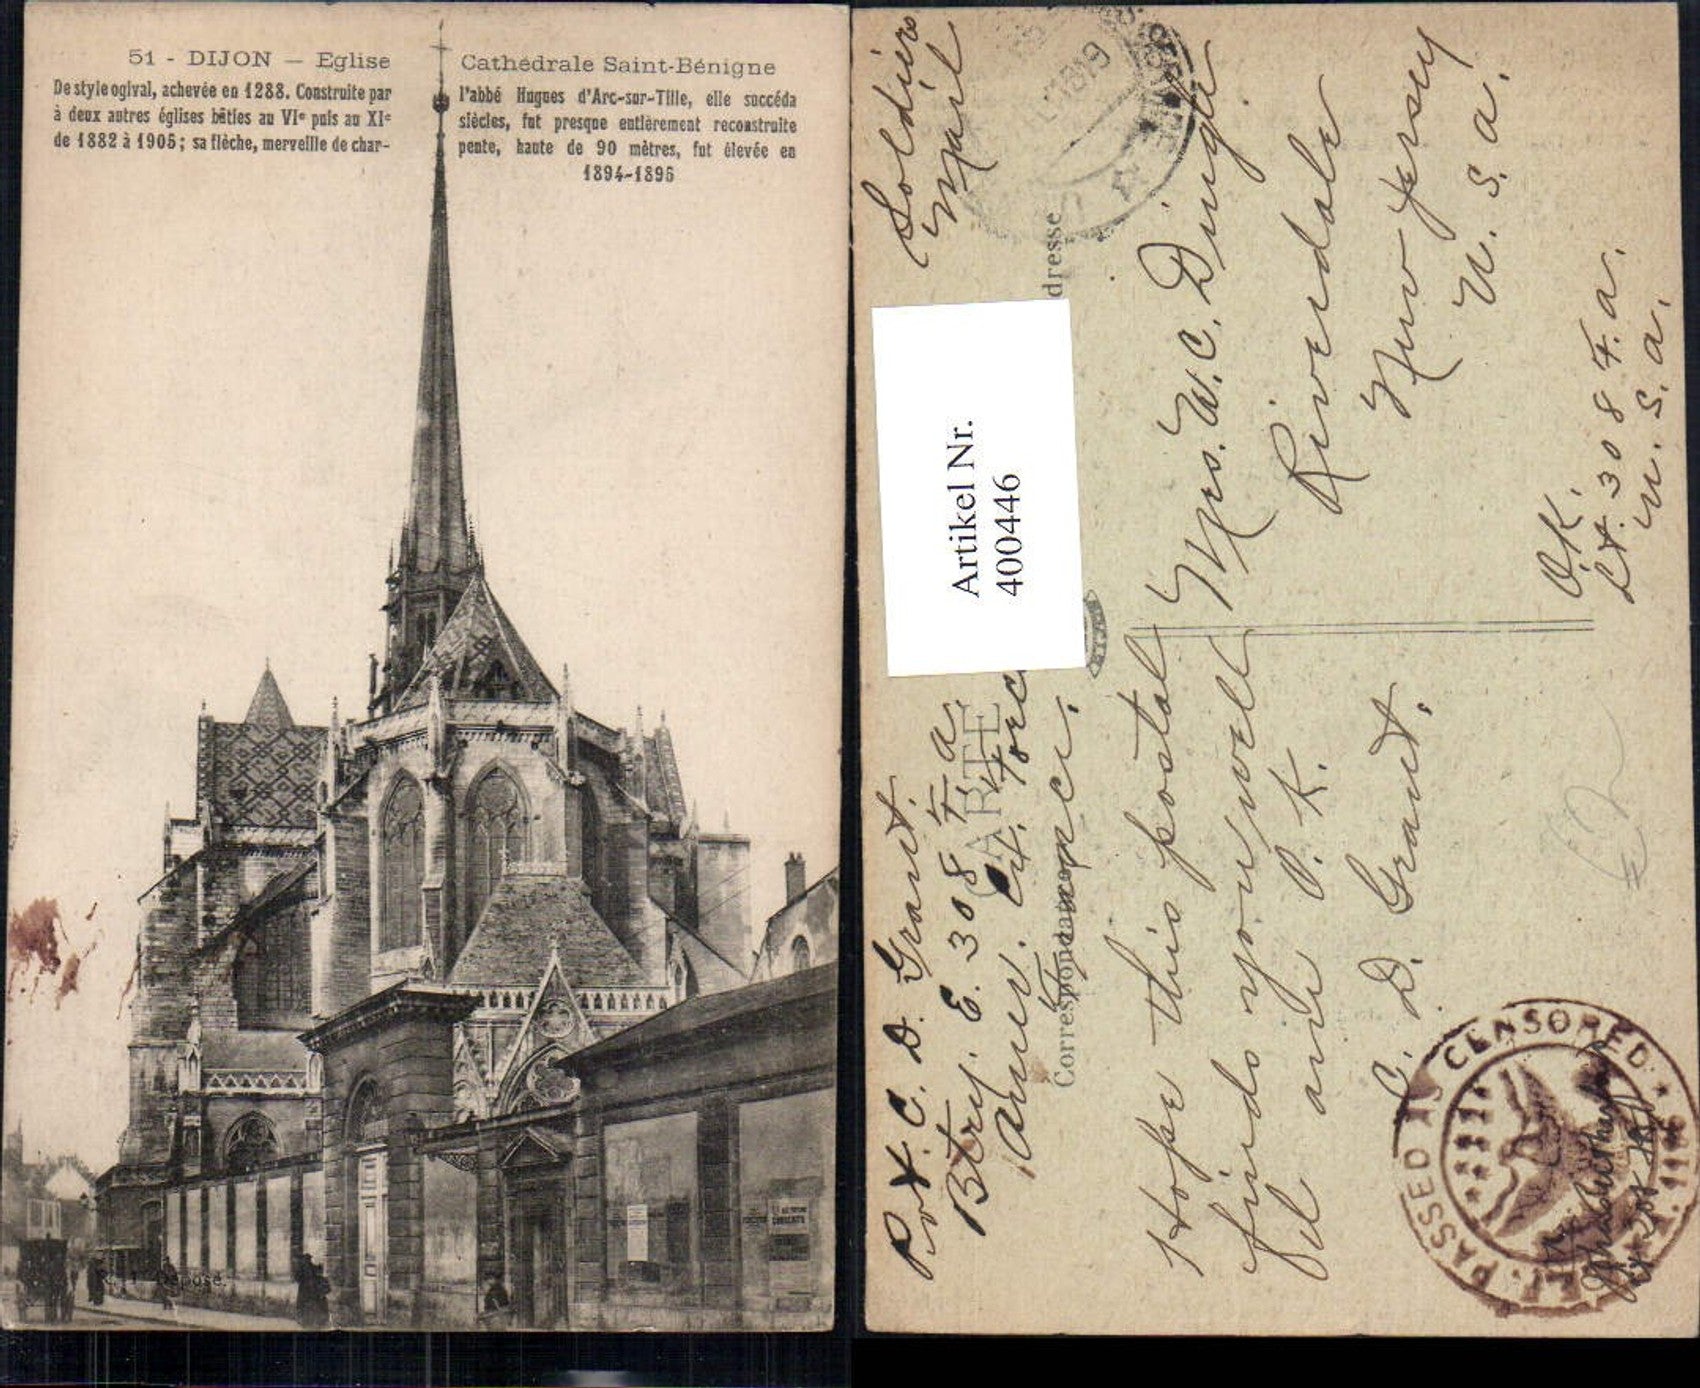 51 - DIJON — Eglise Cathédrale Saint-Bénigne
De style ogival, achevée en 1288. Construite par l'abbé Hugues d'Arc-sur-Tille, elle succéda
à deux autres églises bâties au VIe puis au XIe siècles, fut presque entièrement reconstruite
de 1882 à 1905; sa flèche, merveille de char- pente, haute de 90 mètres, fut élevée en
1894-1896
Déposé.
Soldiers
Mail
1819
Artikel Nr.
400446
CARTE
Correspondance
dresse
Pvt. C. D. Grant.
Btry. E. 308 F. A.
Amer. Ex. Forc
Mrs. W. C. Dingle
Riverdale
New Jersey
U. S. A.
Hope this postal
finds you well
and O. K.
C. D. Grant.
O.K.
Lt. 308 F. A.
U. S. A.
PASSED AS CENSORED